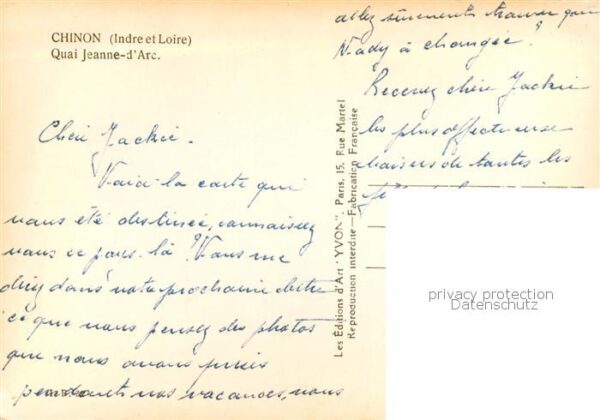 CHINON (Indre et Loire)
Quai Jeanne-d'Arc.
Chère Jackie.
Voici la carte qui
vous été destinée, connaissez
vous ce pays-là? Vous me
direz dans votre prochaine lettre
ce que vous pensez des photos
que nous avons prises
pendant nos vacances, vous
allez sûrement trouver que
Nady à changée?
Recevez chère Jackie
les plus affectueuse
baisers de toutes les
Les Editions d'Art "YVON", Paris, 15, Rue Martel
Reproduction interdite — Fabrication Française
privacy protection
Datenschutz